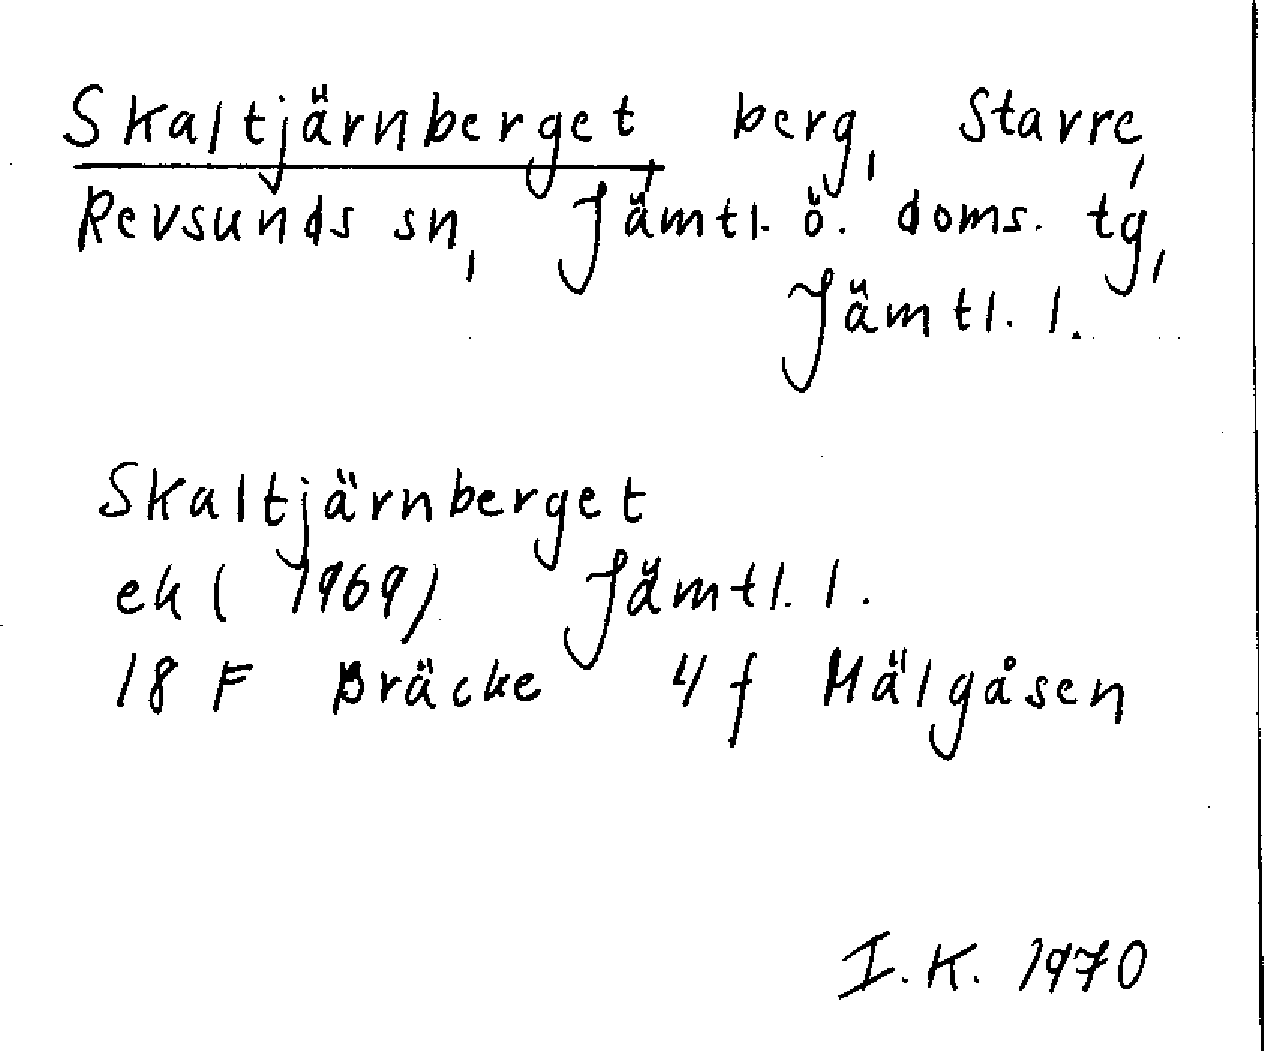 Skaltjärnberget, berg, Stavre,
Revsunds sn, Jämtl. ö. doms. tg,
Jämtl. l.
Skaltjärnberget
ek (1969) Jämtl. l.
18 F Bräcke 4 f Mälgåsen
I. K. 1970